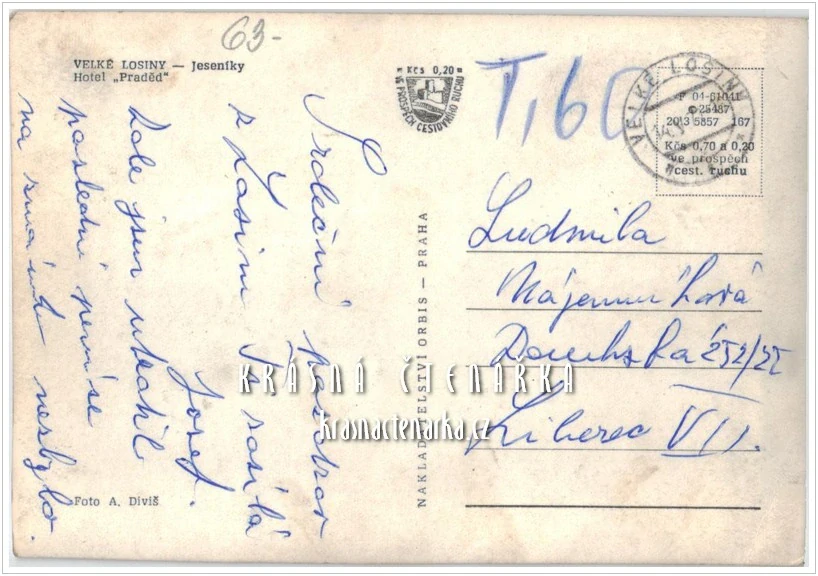 63-
VELKÉ LOSINY — Jeseníky
Hotel „Praděd"
Kčs 0,20
VE PROSPĚCH CESTOVNÍHO RUCHU
T,60
VELKÉ LOSINY
F 04-61041
©25487
20'3 5857 167
Kčs 0,70 a 0,20
ve prospěch
cest. ruchu
Srdeční pozdrav
z Losin Ti posílá
Josef.
Dole jsem utratil
poslední peníze
na známku nezbylo.
NAKLADATELSTVÍ ORBIS — PRAHA
Ludmila
252/22
Liberec VII.
KRÁSNÁ ČTENÁŘKA
krasnactenarka.cz
Foto A. Diviš